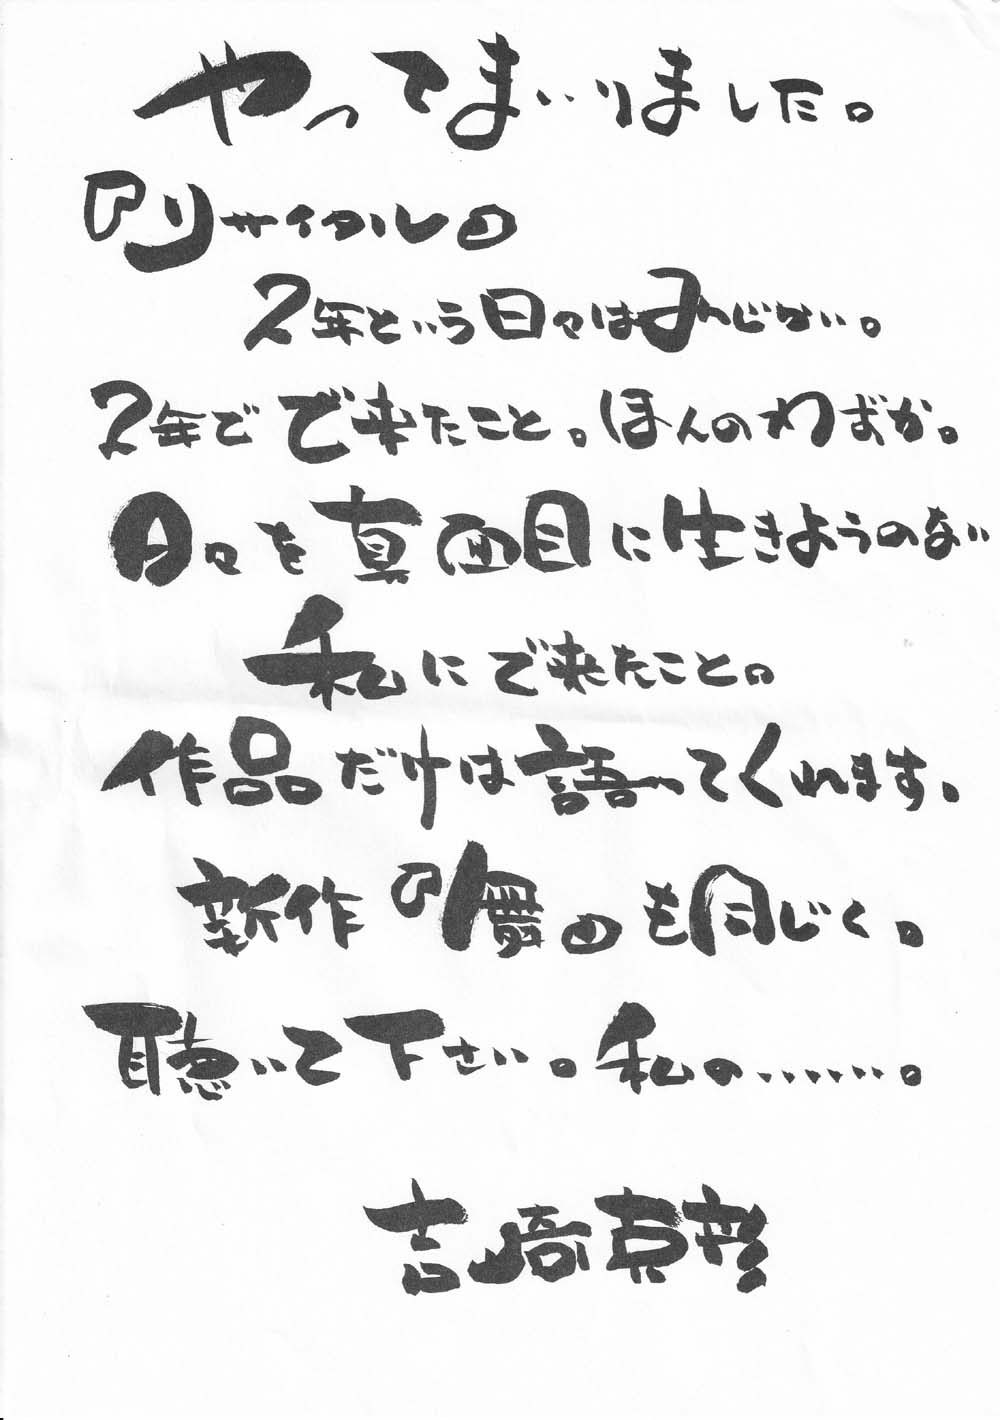 やってまいりました。
『リサイタル』
2年という日々はみじかい。
2年でで来たこと。ほんのわずか。
日々を真面目に生きようのない
私にで来たこと。
作品だけは語ってくれます。
新作『舞』も同じく。
聴いて下さい。私の……。
吉崎克彦